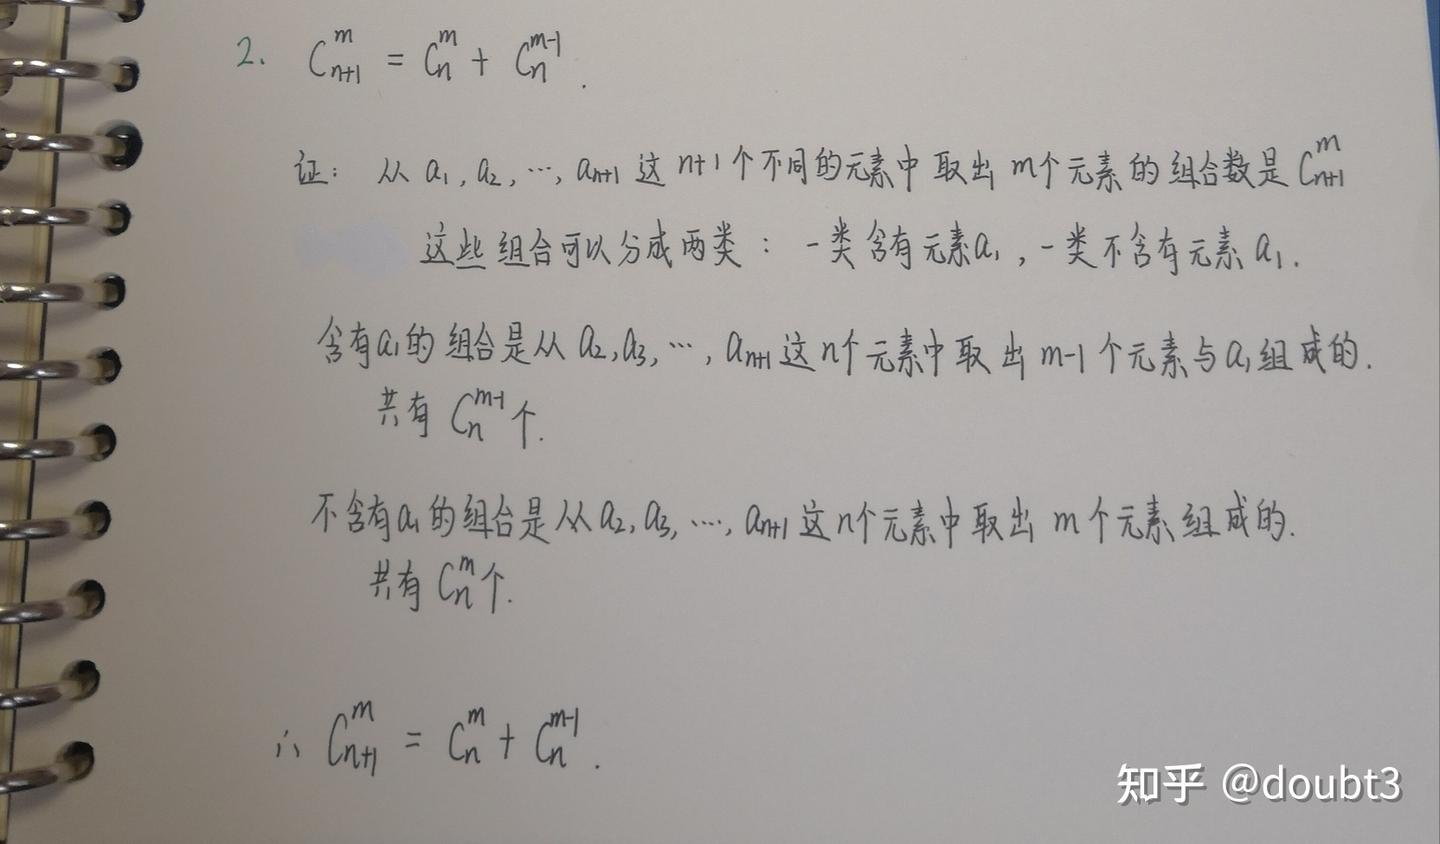 2. C_{n+1}^{m} = C_{n}^{m} + C_{n}^{m-1}.
证: 从 a₁, a₂, …, aₙ₊₁ 这 n+1 个不同的元素中 取出 m个元素的组合数是 C_{n+1}^{m}
这些组合可以分成两类: 一类含有元素a₁, 一类不含有元素 a₁.
含有a₁的组合是从 a₂,a₃, …, aₙ₊₁ 这n个元素中取出 m-1 个元素与a₁组成的.
共有 C_{n}^{m-1} 个.
不含有a₁的组合是从a₂, a₃, …, aₙ₊₁ 这n个元素中取出 m个元素组成的.
共有 C_{n}^{m} 个.
∴ C_{n+1}^{m} = C_{n}^{m} + C_{n}^{m-1}.
知乎 @doubt3